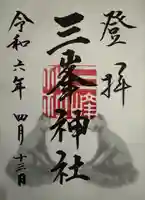 登拝
三峯神社
令和六年 四月 十三日